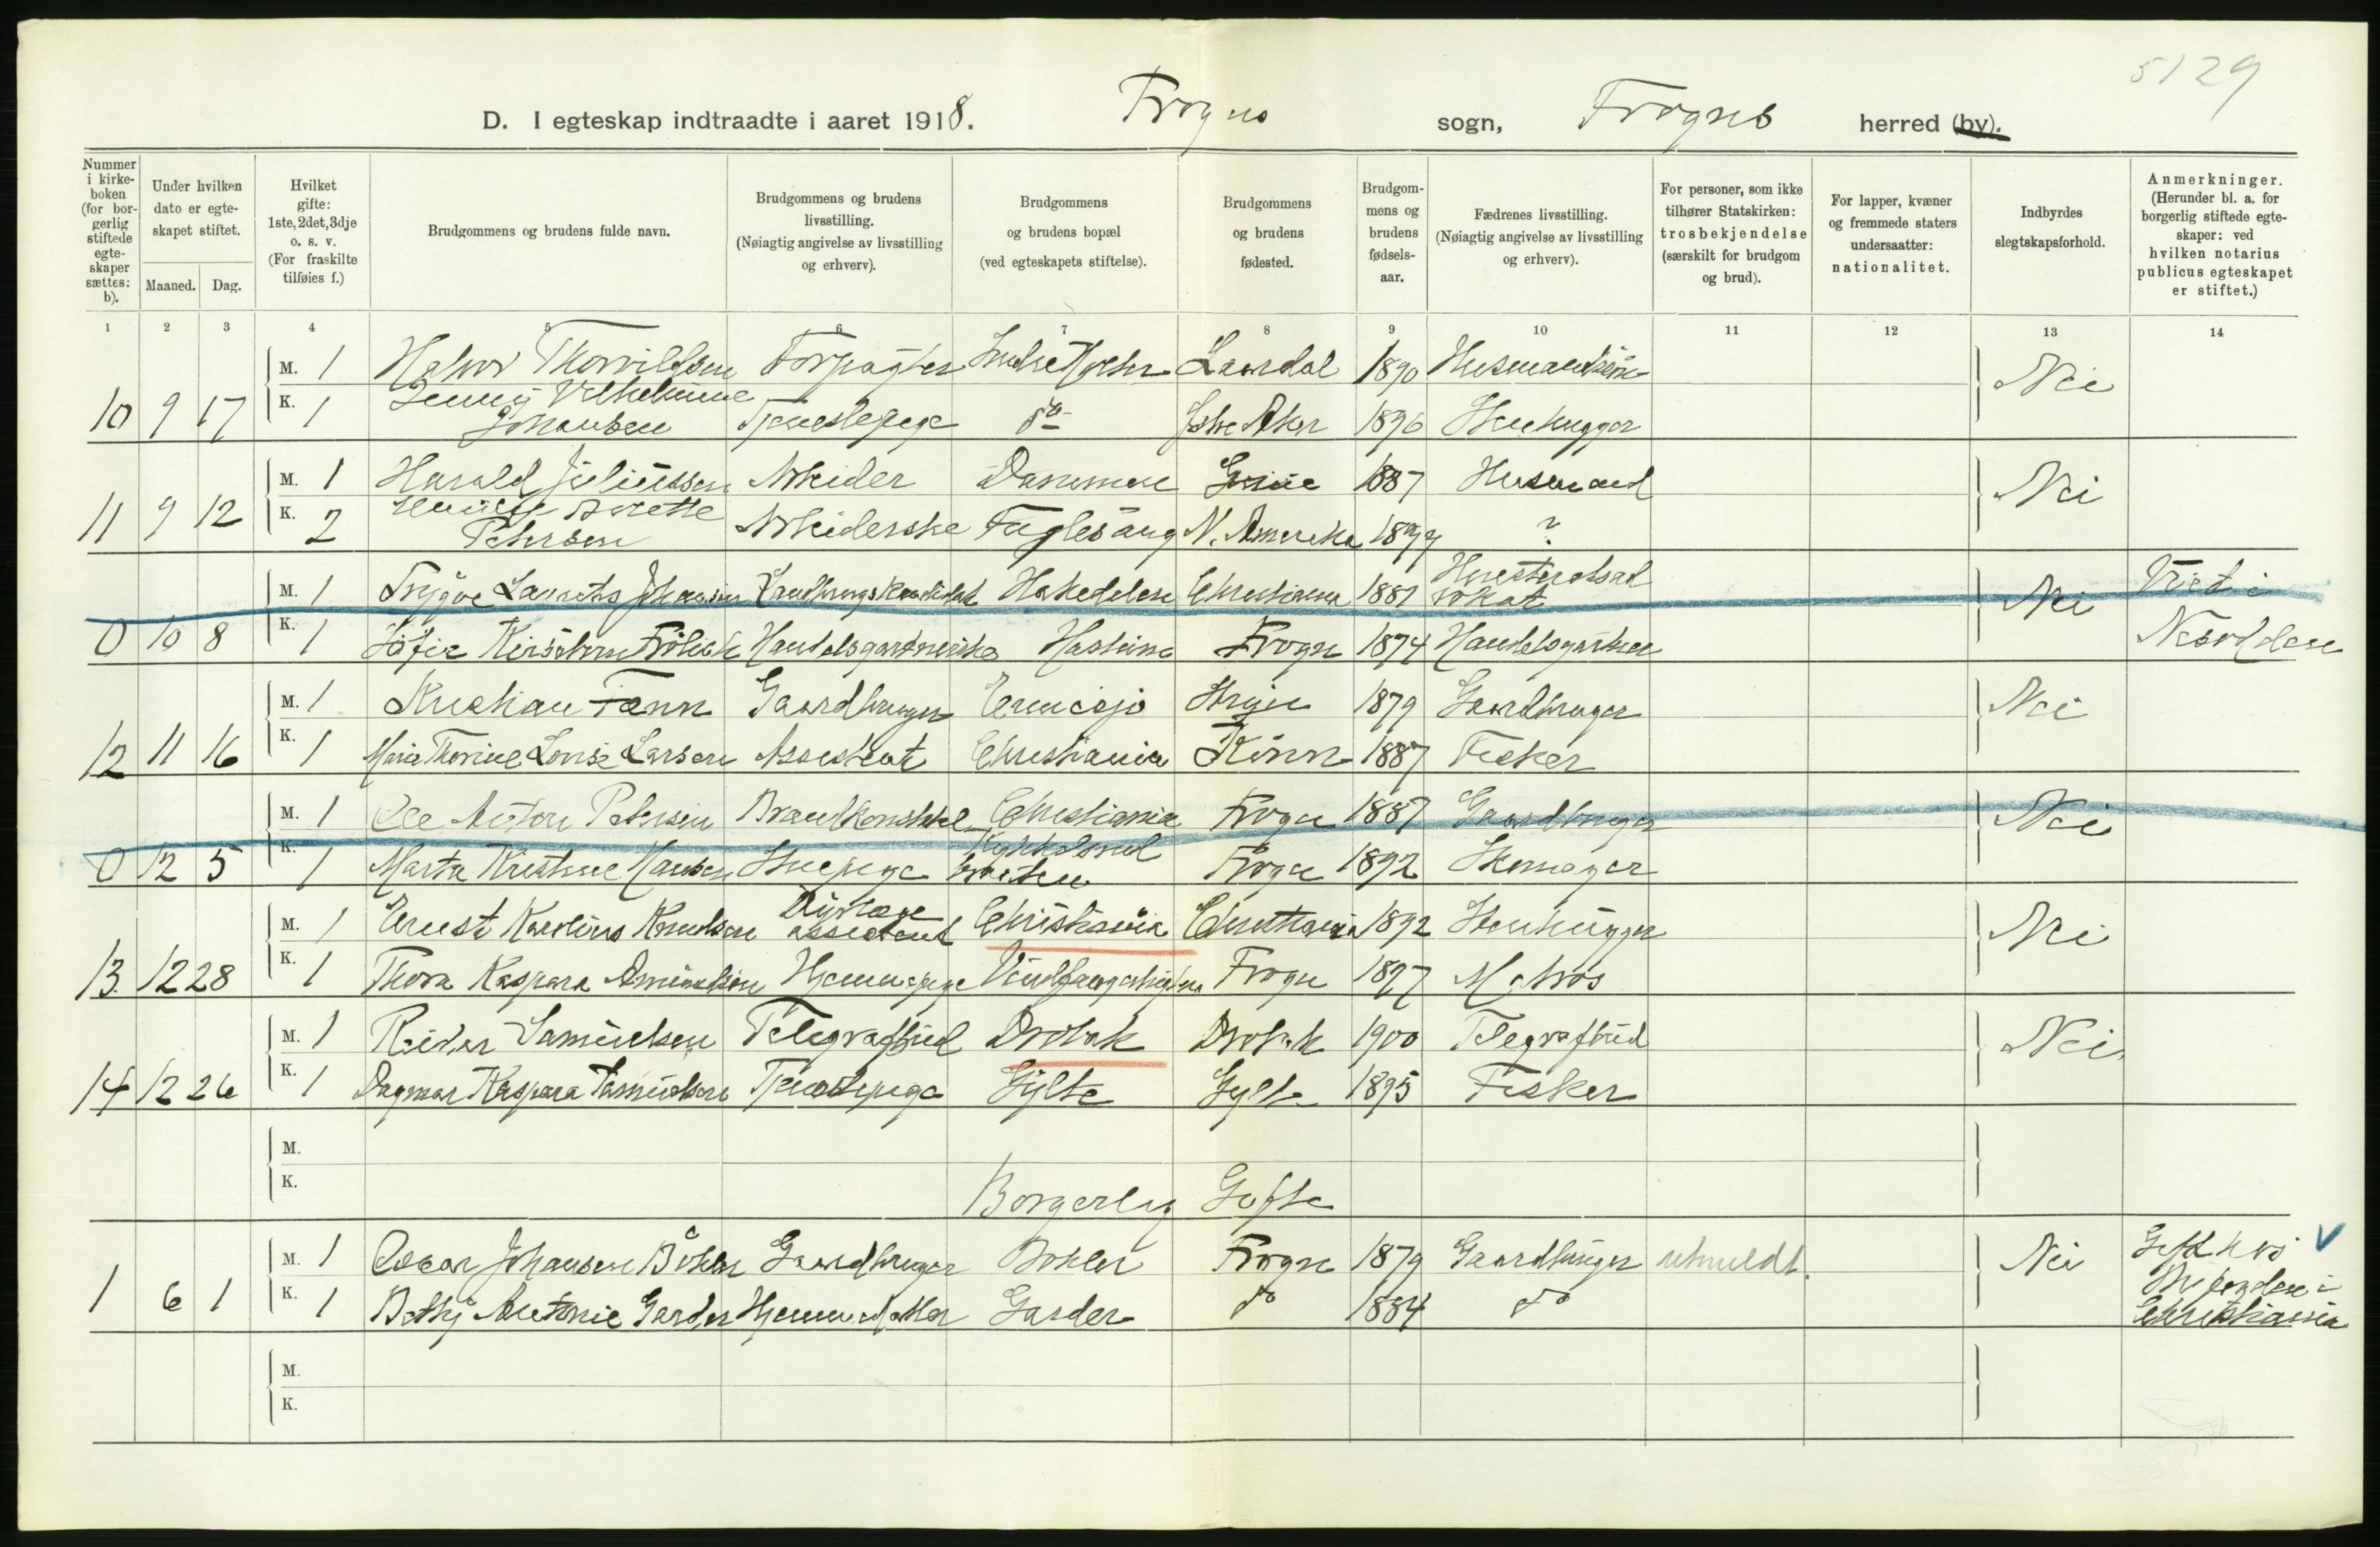 5129
D. I egteskap indtraadte i aaret 1918. Frogns sogn, Frogns herred (by).
Nummer i kirkeboken (for borgerlig stiftede egteskaper sættes: b).
Under hvilken dato er egteskapet stiftet.
Maaned. Dag.
Hvilket gifte: 1ste, 2det, 3dje o. s. v. (For fraskilte tilføies f.)
Brudgommens og brudens fulde navn.
Brudgommens og brudens livsstilling. (Nøiagtig angivelse av livsstilling og erhverv).
Brudgommens og brudens bopæl (ved egteskapets stiftelse).
Brudgommens og brudens fødested.
Brudgommens og brudens fødselsaar.
Fædrenes livsstilling. (Nøiagtig angivelse av livsstilling og erhverv).
For personer, som ikke tilhører Statskirken: trosbekjendelse (særskilt for brudgom og brud).
For lapper, kvæner og fremmede staters undersaatter: nationalitet.
Indbyrdes slegtskapsforhold.
Anmerkninger. (Herunder bl. a. for borgerlig stiftede egteskaper: ved hvilken notarius publicus egteskapet er stiftet.)
1 2 3 4 5 6 7 8 9 10 11 12 13 14
M. 1 Forpagter Laardal 1890 Nei
10 9 17 K. 1 Jenny Vilhelmine Johansen Tjenestepige do Østre Aker 1896 Stenhugger
M. 1 Harald Juliussen Arbeider Dammen 1887 Husmand Nei
11 9 12 K. 2 Petersen Arbeiderske Fuglesang N. Amerika ?
M. 1 Trygve Laurits Johansen Christiania 1881 Nei Viet i
0 10 8 K. 1 Frølich Handelsgartnerske Frogn 1874 Handelsgartner Nesodden
M. 1 Kristian Tønn Gaardbruger Stryn 1879 Gaardbruger Nei
12 11 16 K. 1 Marie Thorine Lovise Larsen Assistent Christiania Kinn 1887 Fisker
M. 1 Ole Anton Petersen Brandkonstabel Christiania Frogn 1887 Gaardbruger Nei
0 12 5 K. 1 Marta Kristine Hansen Frogn 1892 Skomager
M. 1 Ernst Karelius Knudsen assistent Christiania Christiania 1892 Stenhugger Nei
13. 12 28 K. 1 Thora Kaspara Amundsen Hjemmepige Frogn 1897 Matros
M. 1 Reidar Samuelsen Telegrafbud Drøbak Drøbak 1900 Telegrafbud Nei
14 12 26 K. 1 Dagmar Kaspara Rasmussen Tjenestepige Gylte Gylte 1895 Fisker
M.
K. Borgerlig Gifte
M. 1 Oscar Johansen Bøhler Gaardbruger Bøhler Frogn 1879 Gaardbruger utmeldt. Nei Gift hos
1 6 1 K. 1 Betty Antonie Garder Garder do 1884 do Byfogden i Christiania
M.
K.